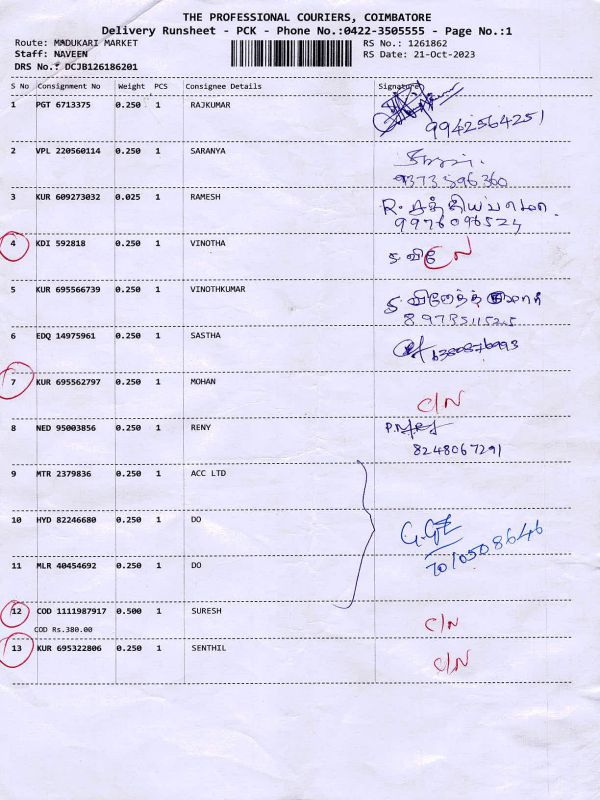 THE PROFESSIONAL COURIERS, COIMBATORE
Delivery Runsheet - PCK - Phone No.:0422-3505555 - Page No.:1
Route: MADUKARI MARKET RS No.: 1261862
Staff: NAVEEN RS Date: 21-Oct-2023
DRS No.: DCJB126186201
S No Consignment No Weight PCS Consignee Details Signature
1 PGT 6713375 0.250 1 RAJKUMAR
9942564251
2 VPL 220560114 0.250 1 SARANYA
9373896360
3 KUR 609273032 0.025 1 RAMESH R.
9976096524
4 KDI 592818 0.250 1 VINOTHA C/N
5 KUR 695566739 0.250 1 VINOTHKUMAR
6 EDQ 14975961 0.250 1 SASTHA
6380876993
7 KUR 695562797 0.250 1 MOHAN C/N
8 NED 95003856 0.250 1 RENY
8248067291
9 MTR 2379836 0.250 1 ACC LTD
10 HYD 82246680 0.250 1 DO
7010508646
11 MLR 40454692 0.250 1 DO
12 COD 1111987917 0.500 1 SURESH C/N
COD Rs.380.00
13 KUR 695322806 0.250 1 SENTHIL C/N